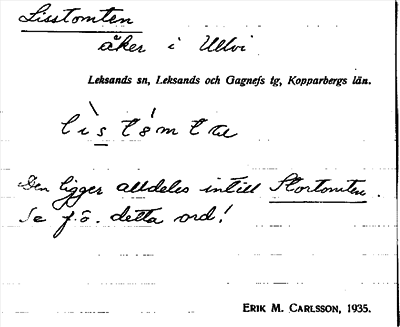 Lisstomten
åker i Ullvi
Leksands sn, Leksands och Gagnefs tg, Kopparbergs län.
Den ligger alldeles intill Stortomten.
Se f.ö. detta ord!
ERIK M. CARLSSON, 1935.